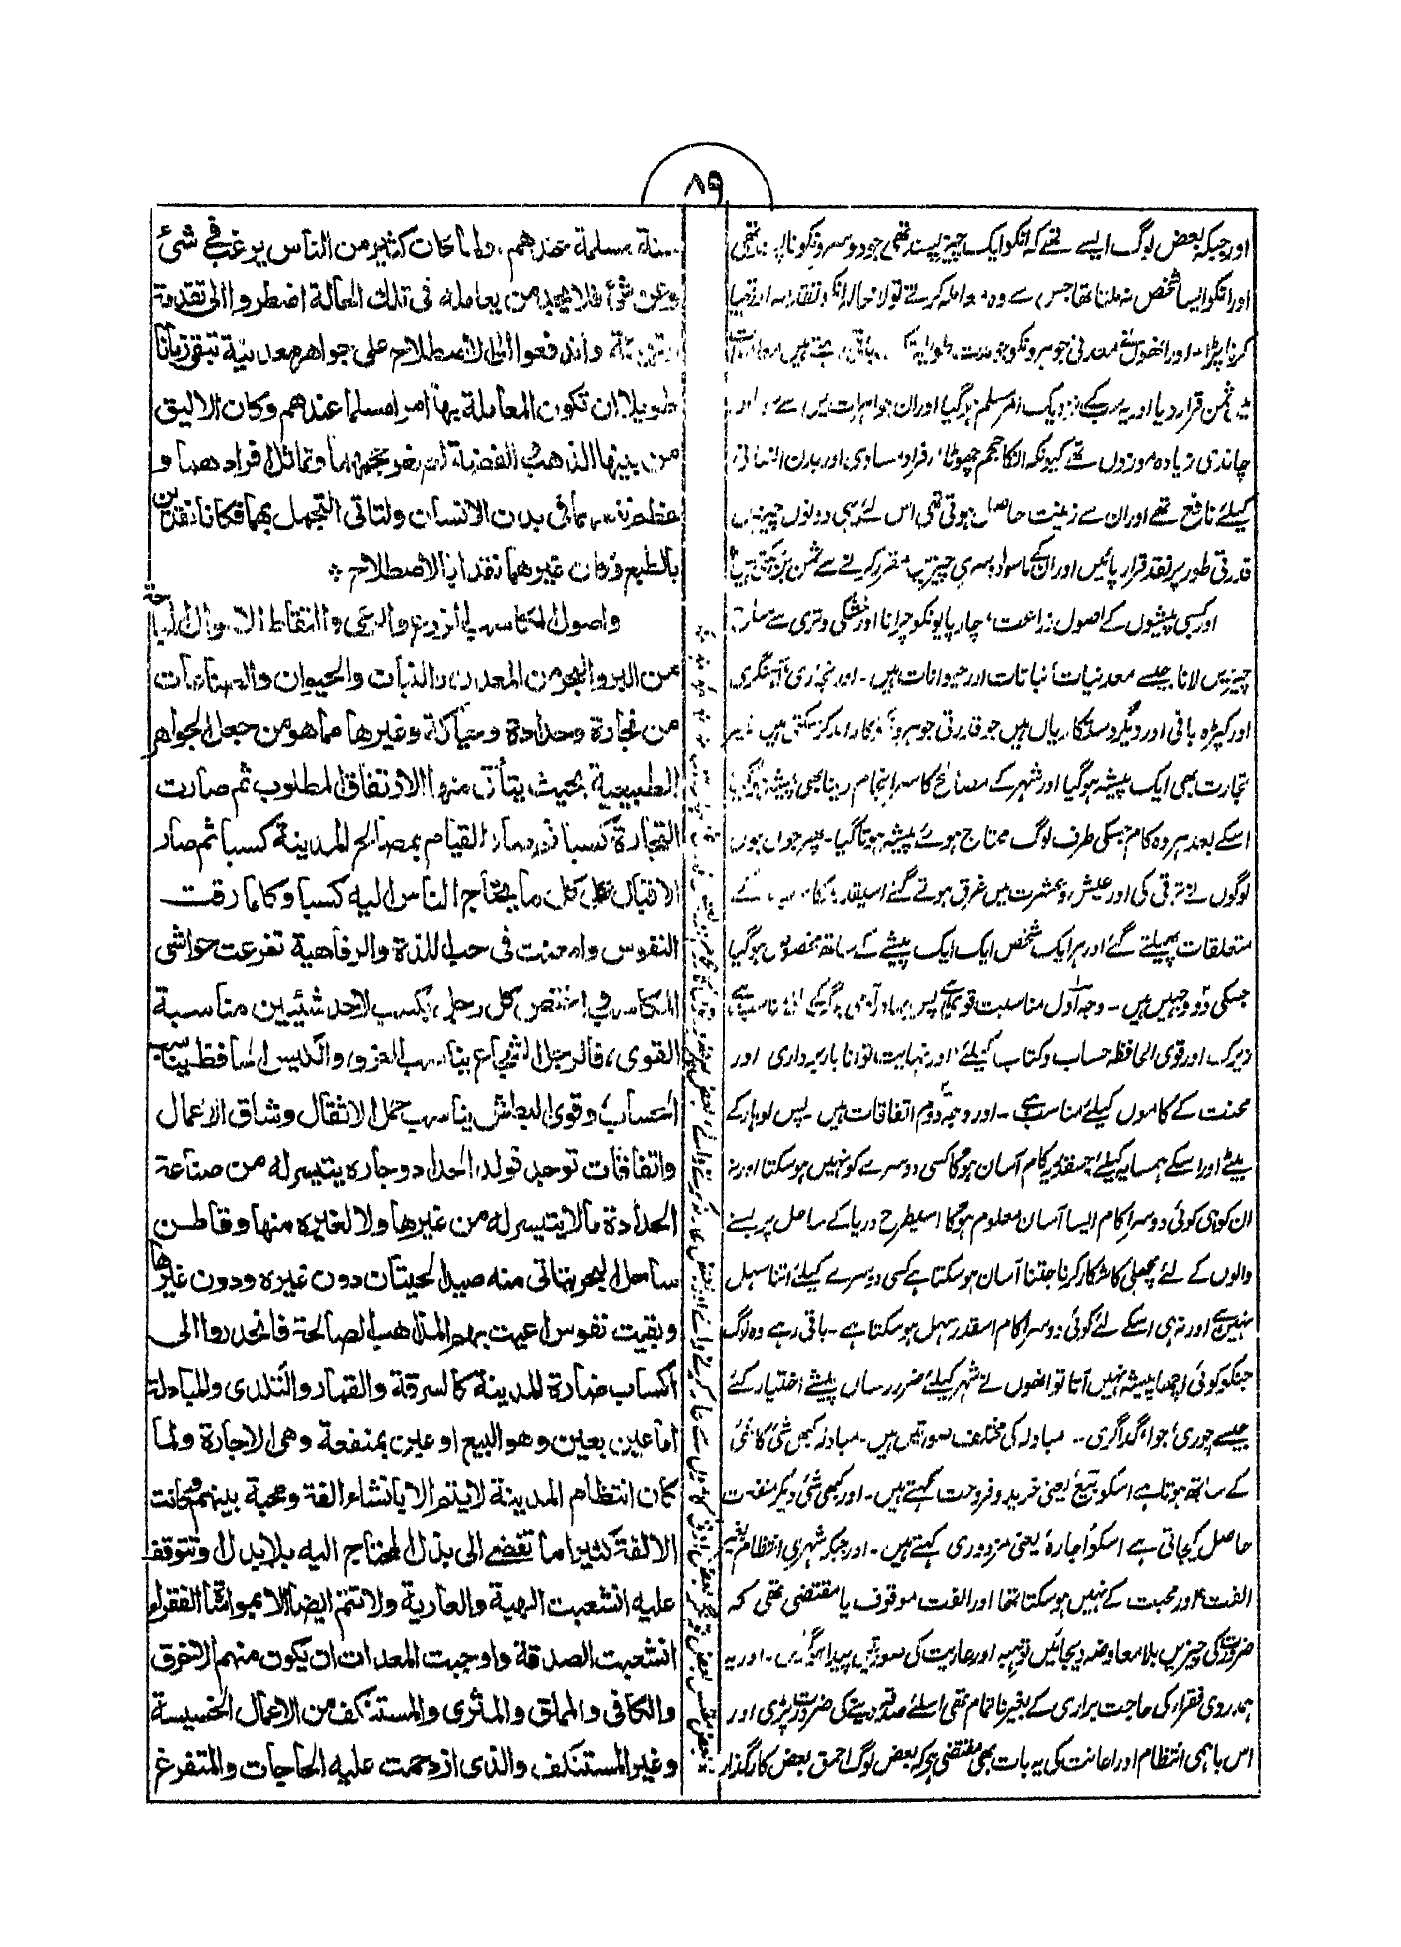 ۸۹
اور جبکہ بعض لوگ ایسے تھے کہ انکو ایک چیز پسند تھی جو دوسرونکو ناپسند تھی
اور انکو ایسا شخص نہ ملتا تھا جس سے وہ معاملہ کرتے تو لا محالہ انکو تقدمہ اور تہیا
کرنا پڑا۔ اور انھوں نے معدنی جوہرونکو جو مدت طویلہ تک باقی رہتے ہیں
ثمن قرار دیا اور یہ سب کے نزدیک امر مسلم ہو گیا اور ان جواہرات میں سے سونا اور
چاندی زیادہ موزوں تھے کیونکہ انکا حجم چھوٹا، افراد مساوی اور بدن انسانی
کیلئے نافع تھے اور ان سے زینت حاصل ہوتی تھی اس لئے یہی دونوں چیزیں
قدرتی طور پر نقد قرار پائیں اور انکے ماسوا دوسری چیزیں مقرر کرنے سے ثمن بن سکتی ہیں
اور کسبی پیشوں کے اصول زراعت، چارپایونکو چرانا اور خشکی و تری سے مباح
چیزیں لانا جیسے معدنیات، نباتات اور حیوانات ہیں۔ اور نجاری، آہنگری
اور کپڑہ بافی اور دیگر دستکاریاں ہیں جو قدرتی جوہرونکو کارآمد کر سکتی ہیں پھر
تجارت بھی ایک پیشہ ہو گیا اور شہر کے مصالح کا سرانجام دینا بھی پیشہ ہو گیا
اسکے بعد ہر وہ کام جسکی طرف لوگ محتاج ہوئے پیشہ ہوتا گیا۔ پھر جوں جوں
لوگوں نے ترقی کی اور عیش و عشرت میں غرق ہوتے گئے اسیقدر کام کے
متعلقات پھیلتے گئے اور ہر ایک شخص ایک ایک پیشے کے ساتھ مخصوص ہو گیا
جسکی دو وجہیں ہیں۔ وجہ اول مناسبت قوی ہے پس بہادر آدمی جنگ کے لئے مناسب ہے
زیرک اور قوی الحافظہ حساب و کتاب کیلئے اور نہایت توانا باربرداری اور
محنت کے کاموں کیلئے مناسب ہے۔ اور وجہ دوم اتفاقات ہیں۔ پس لوہار کے
بیٹے اور اسکے ہمسایہ کیلئے جسقدر یہ کام آسان ہوگا کسی دوسرے کو نہیں ہو سکتا اور نہ
ان کو ہی کوئی دوسرا کام ایسا آسان معلوم ہوگا اسیطرح دریا کے ساحل پر بسنے
والوں کے لئے مچھلی کا شکار کرنا جتنا آسان ہو سکتا ہے کسی دوسرے کیلئے اتنا سہل
نہیں ہے اور نہ ہی اسکے لئے کوئی دوسرا کام اسقدر سہل ہو سکتا ہے۔ باقی رہے وہ لوگ
جنکو کوئی اچھا پیشہ نہیں آتا تو انھوں نے شہر کیلئے ضرر رساں پیشے اختیار کئے
جیسے چوری، جوا، گداگری۔ مبادلہ کی مختلف صورتیں ہیں۔ مبادلہ کبھی شئ کا شئ
کے ساتھ ہوتا ہے اسکو بیع یعنی خرید و فروخت کہتے ہیں۔ اور کبھی شئ دیکر منفعت
حاصل کیجاتی ہے اسکو اجارہ یعنی مزدوری کہتے ہیں۔ اور جبکہ شہری انتظام بغیر
الفت اور محبت کے نہیں ہو سکتا تھا اور الفت موقوف یا مقتضی تھی کہ
ضرورت کی چیزیں بلا معاوضہ دیجائیں تو ہبہ اور عاریت کی صورتیں پیدا ہوگئیں۔ اور یہ
ہمدردی فقراء کی حاجت براری کے بغیر ناتمام تھی اسلئے صدقہ دینے کی ضرورت پڑی اور
اس باہمی انتظام اور اعانت کی یہ بات بھی مقتضی ہے کہ بعض لوگ احمق بعض کارگذار
بعض مفلس بعض تونگر
سنة مسلمة عندهم، ولما كان كثير من الناس يرغب فى شئ
وعن شئ فلا يجد من يعامله فى تلك الحالة اضطروا الى تقدمة
وتهيئة واندفعوا الى الاصطلاح على جواهر معدنية تبقى زمانا
طويلا ان تكون المعاملة بها امرا مسلما عندهم وكان الاليق
من بينها الذهب والفضة لصغر حجمهما وتماثل افرادهما و
عظم نفعهما فى بدن الانسان ولتاتى التجمل بهما فكانا نقدين
بالطبع وكان غيرهما نقدا بالاصطلاح
واصول المكاسب الزرع والرعى والتقاط الاموال المباحة
من البر والبحر من المعدن والنبات والحيوان والصناعات
من نجارة وحدادة وحياكة وغيرها مما هو من جعل الجواهر
الطبيعية بحيث يتأتى منها الارتفاق المطلوب ثم صارت
التجارة كسبا ثم صار القيام بمصالح المدينة كسبا ثم صار
الاقبال على كل ما يحتاج الناس اليه كسبا وكلما رقت
النفوس وامعنت فى حب اللذة والرفاهية تفرعت حواشى
المكاسب واختص كل رجل بكسب لاحد شيئين مناسبة
القوى، فالرجل الشجاع يناسب الغزو، والكيس الحافظ يناسب
الحساب وقوى البطش يناسب حمل الاثقال وشاق الاعمال
واتفاقات توجد فولد الحداد وجاره يتيسر له من صناعة
الحدادة مالا يتيسر له من غيرها ولا لغيره منها وقاطن
ساحل البحر يتاتى منه صيد الحيتان دون غيره ودون غيرها
وبقيت نفوس اعيت بهم المذاهب الصالحة فانحدروا الى
اكساب ضارة للمدينة كالسرقة والقمار والتكدى والمبادلة
اما عين بعين وهو البيع او عين بمنفعة وهى الاجارة ولما
كان انتظام المدينة لا يتم الا بانشاء الفة ومحبة بينهم وكانت
الالفة كثيرا ما تفضى الى بذل المحتاج اليه بلا بدل وتتوقف
عليه انشعبت الهبة والعارية ولا تتم ايضا الا بمواساة الفقراء
انشعبت الصدقة واوجبت المعدات ان يكون منهم الاخرق
والكافى والمملق والمثرى والمستنكف من الاعمال الخسيسة
وغير المستنكف والذى ازدحمت عليه الحاجات والمتفرغ